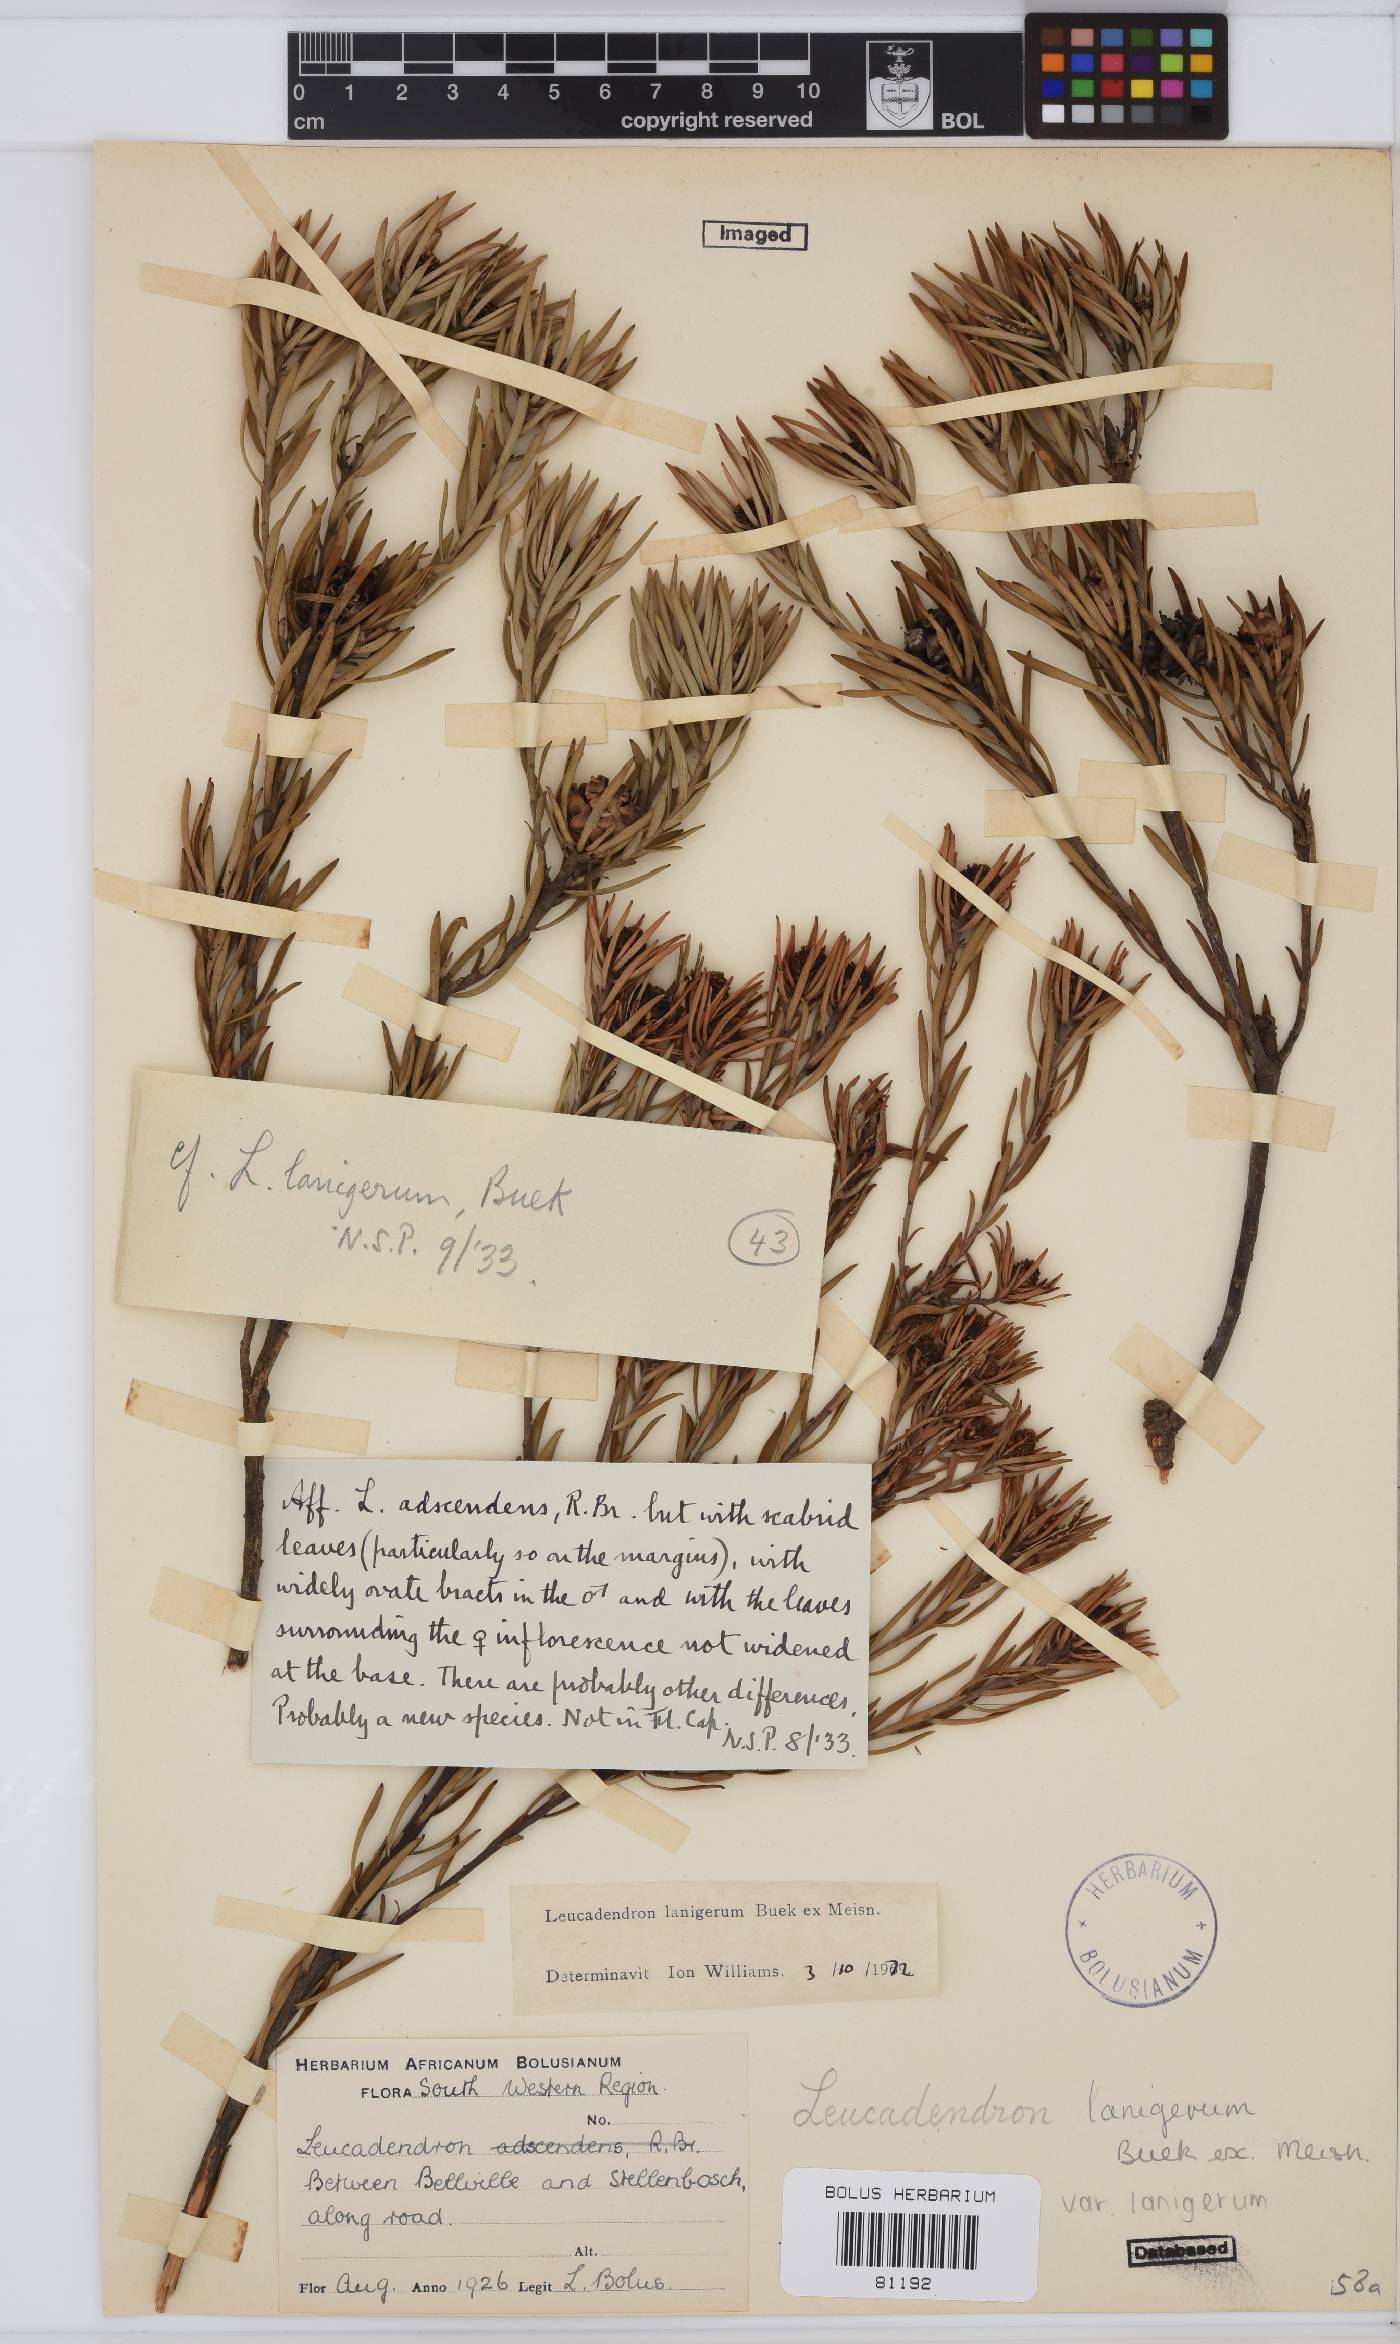 0 1 2 3 4 5 6 7 8 9 10
cm
copyright reserved
BOL
Imaged
cf. L. lanigerum, Buek
N.S.P. 9/'33.
43
Aff. L. adscendens, R.Br. but with scabrid
leaves (particularly so on the margins), with
widely ovate bracts in the ♂ and with the leaves
surrounding the ♀ inflorescence not widened
at the base. There are probably other differences.
Probably a new species. Not in Fl. Cap.
N.S.P. 8/'33.
Leucadendron lanigerum Buek ex Meisn.
Determinavit Ion Williams. 3/10/1972
HERBARIUM
BOLUSIANUM
HERBARIUM AFRICANUM BOLUSIANUM
FLORA South Western Region.
No.
Leucadendron adscendens, R.Br.
Between Bellville and Stellenbosch,
along road.
Alt.
Flor Aug. Anno 1926 Legit L. Bolus.
Leucadendron lanigerum
Buek ex. Meisn.
var. lanigerum
BOLUS HERBARIUM
81192
Databased
58a